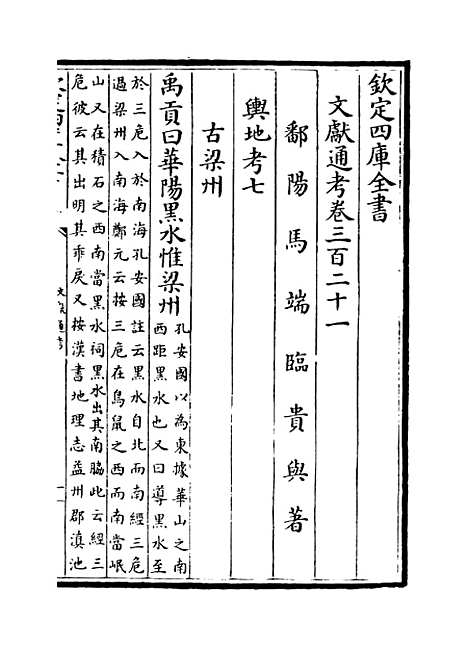 欽定四庫全書
文獻通考卷三百二十一
鄱陽馬端臨貴與著
輿地考七
古梁州
禹貢曰華陽黑水惟梁州
孔安國以為東據華山之南
西距黑水也又曰導黑水至
於三危入於南海孔安國註云黑水自北而南經三危
過梁州入南海鄭元云按三危在鳥鼠之西而南當岷
山又在積石之西南當黑水祠黑水出其南脇此云經三
危彼云其出明其乖戾又按漢書地理志益州郡滇池
文獻通考
一